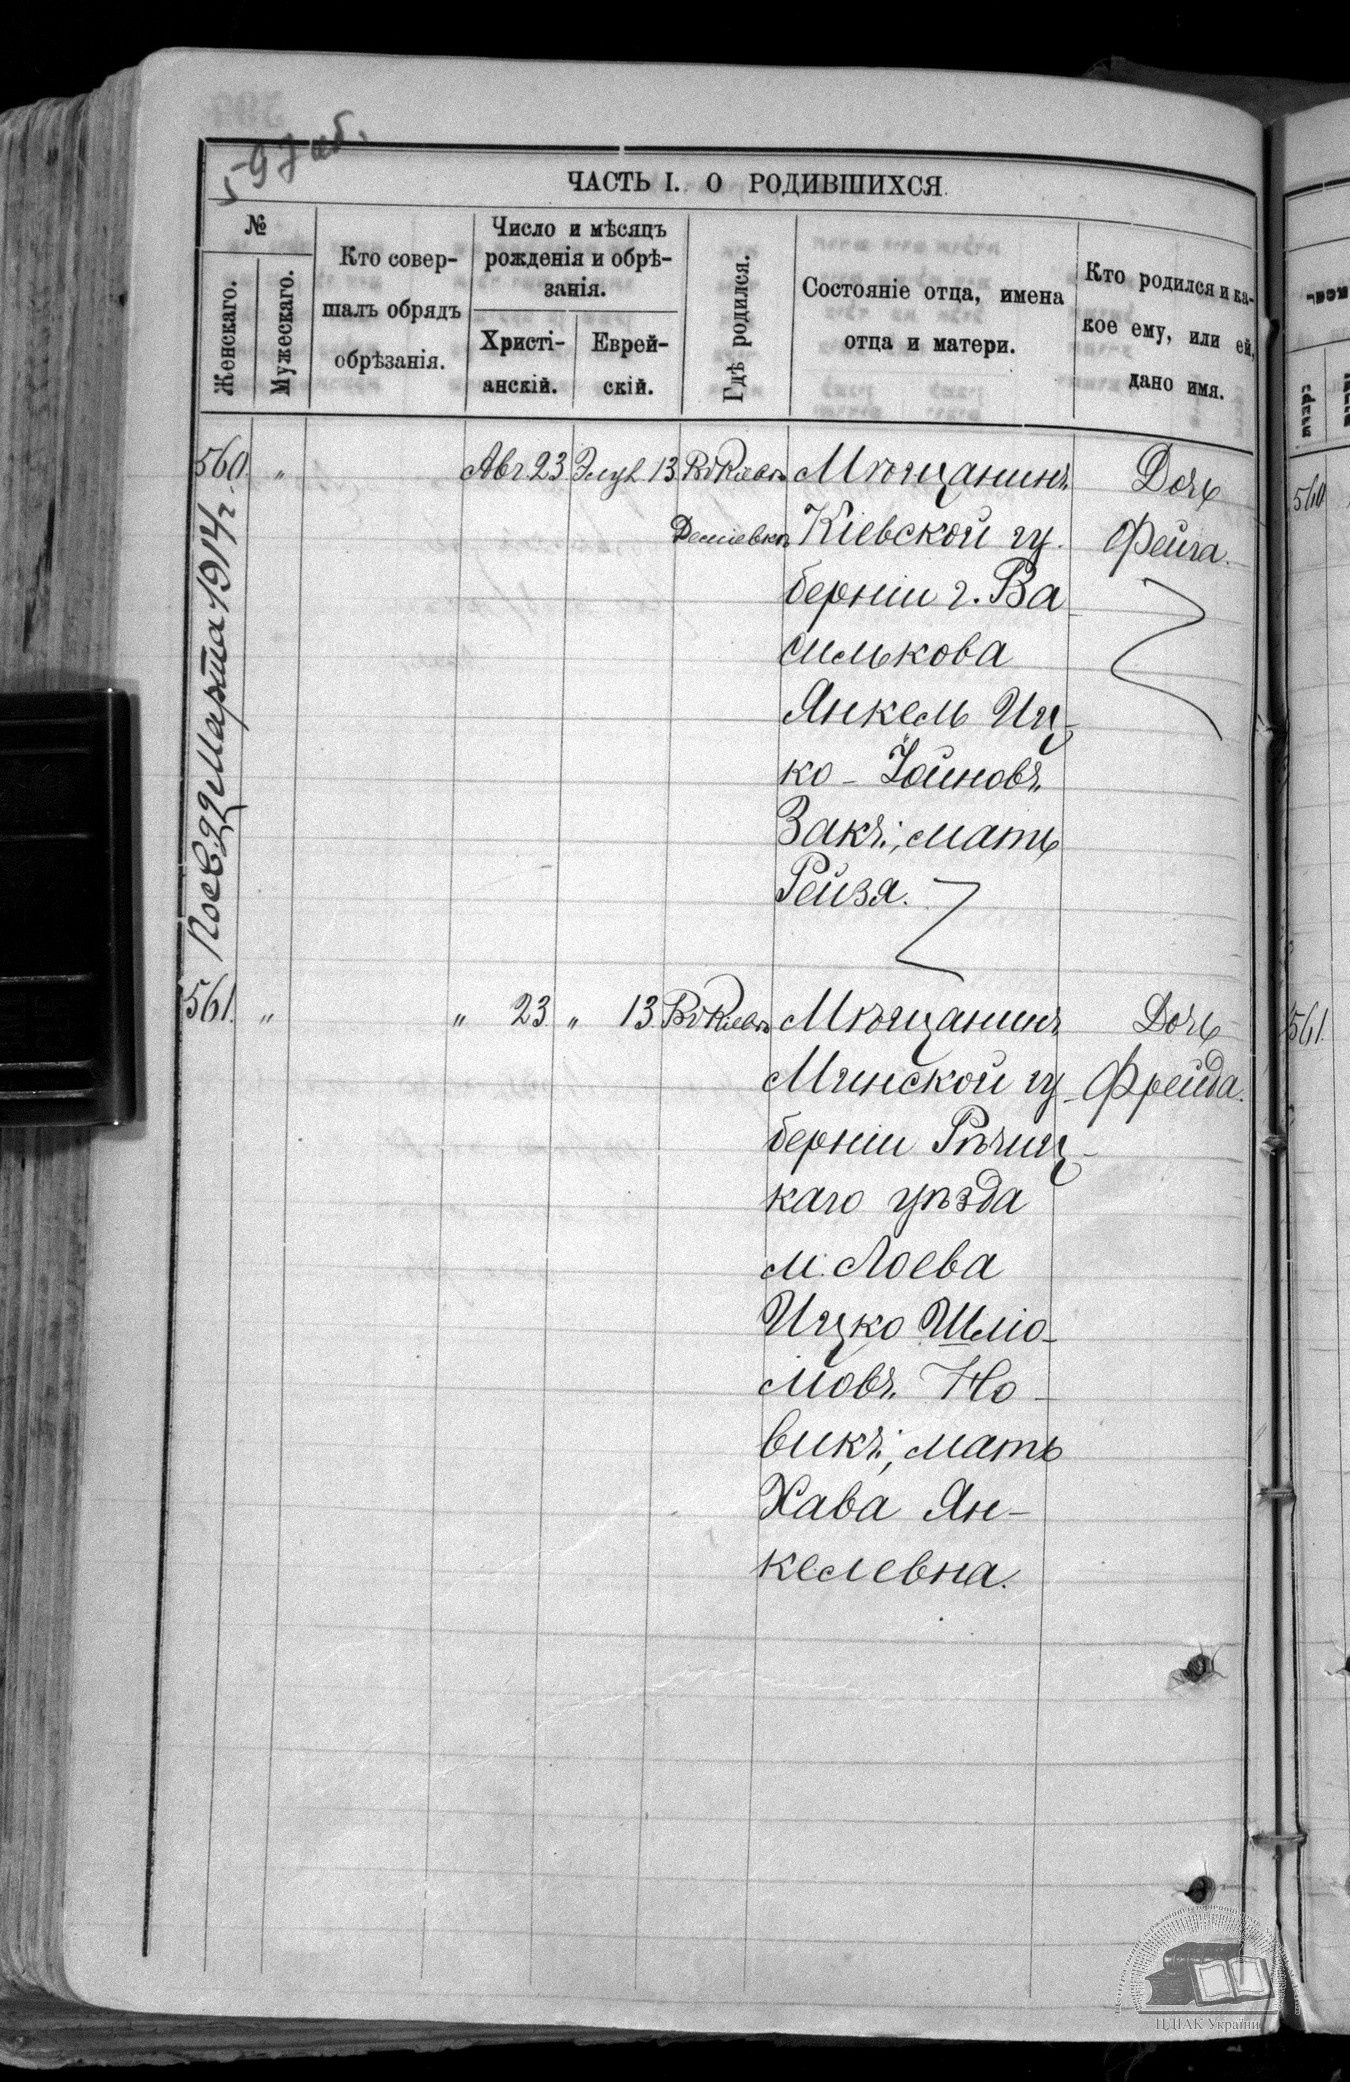 597 об.
ЧАСТЬ I. О РОДИВШИХСЯ.
№
Женскаго.
Мужескаго.
Кто совер-
шалъ обрядъ
обрѣзанія.
Число и мѣсяцъ
рожденія и обрѣ-
занія.
Христі-
анскій.
Еврей-
скій.
Гдѣ родился.
Состояніе отца, имена
отца и матери.
Кто родился и ка-
кое ему, или ей,
дано имя.
560. „ Авг. 23. Элул. 13. Въ Кіевѣ Мѣщанинъ Дочь
Деміевкѣ Кіевской гу- Фейга.
берніи г. Ва-
силькова
Янкель Иц-
ко-Хаимовъ
Закъ; мать
Рейзя.
Марта 1914 г.
561. „ „ 23. „ 13. Въ Кіевѣ Мѣщанинъ Дочь
Минской гу- Фрейда.
берніи Рѣчиц-
каго уѣзда
м. Лоева
Ицко Шлiо-
мовъ Но-
викъ; мать
Хава Ян-
келевна.
560
561.
ЦДІАК України